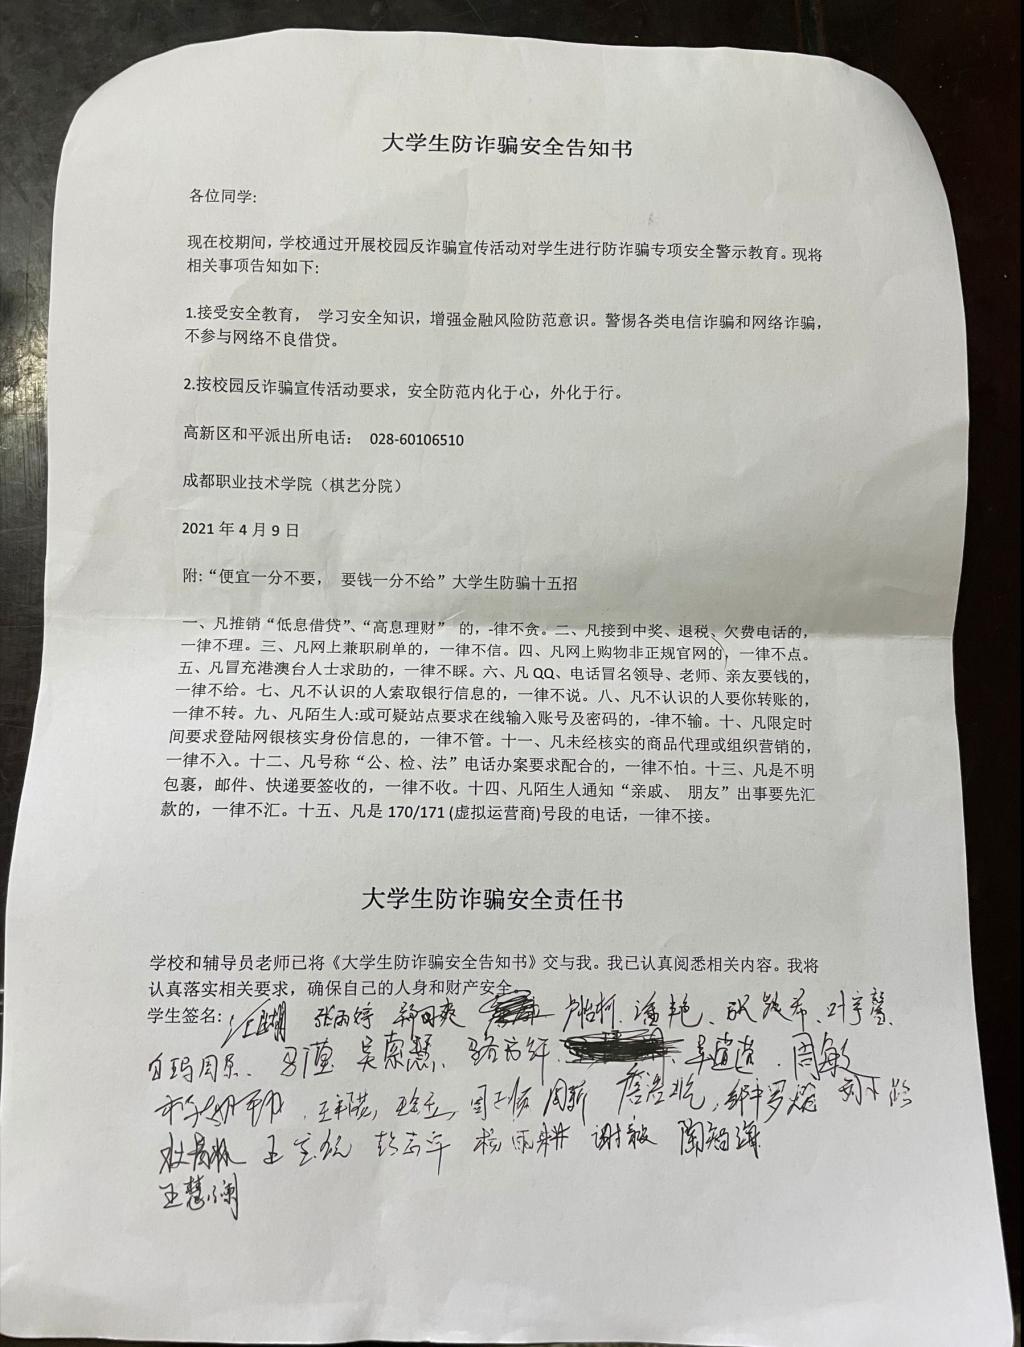 大学生防诈骗安全告知书
各位同学:
现在校期间，学校通过开展校园反诈骗宣传活动对学生进行防诈骗专项安全警示教育。现将
相关事项告知如下:
1.接受安全教育， 学习安全知识，增强金融风险防范意识。警惕各类电信诈骗和网络诈骗，
不参与网络不良借贷。
2.按校园反诈骗宣传活动要求，安全防范内化于心，外化于行。
高新区和平派出所电话： 028-60106510
成都职业技术学院（棋艺分院）
2021 年 4 月 9 日
附:“便宜一分不要， 要钱一分不给”大学生防骗十五招
一、凡推销“低息借贷”、“高息理财” 的，-律不贪。二、凡接到中奖、退税、欠费电话的，
一律不理。三、凡网上兼职刷单的，一律不信。四、凡网上购物非正规官网的，一律不点。
五、凡冒充港澳台人士求助的，一律不睬。六、凡 QQ、电话冒名领导、老师、亲友要钱的，
一律不给。七、凡不认识的人索取银行信息的，一律不说。八、凡不认识的人要你转账的，
一律不转。九、凡陌生人:或可疑站点要求在线输入账号及密码的，-律不输。十、凡限定时
间要求登陆网银核实身份信息的，一律不管。十一、凡未经核实的商品代理或组织营销的，
一律不入。十二、凡号称“公、检、法”电话办案要求配合的，一律不怕。十三、凡是不明
包裹，邮件、快递要签收的，一律不收。十四、凡陌生人通知“亲戚、 朋友”出事要先汇
款的，一律不汇。十五、凡是 170/171 (虚拟运营商)号段的电话，一律不接。
大学生防诈骗安全责任书
学校和辅导员老师已将《大学生防诈骗安全告知书》交与我。我已认真阅悉相关内容。我将
认真落实相关要求，确保自己的人身和财产安全。
学生签名: 潘艳
周敏
周新
谢敏
王慧澜